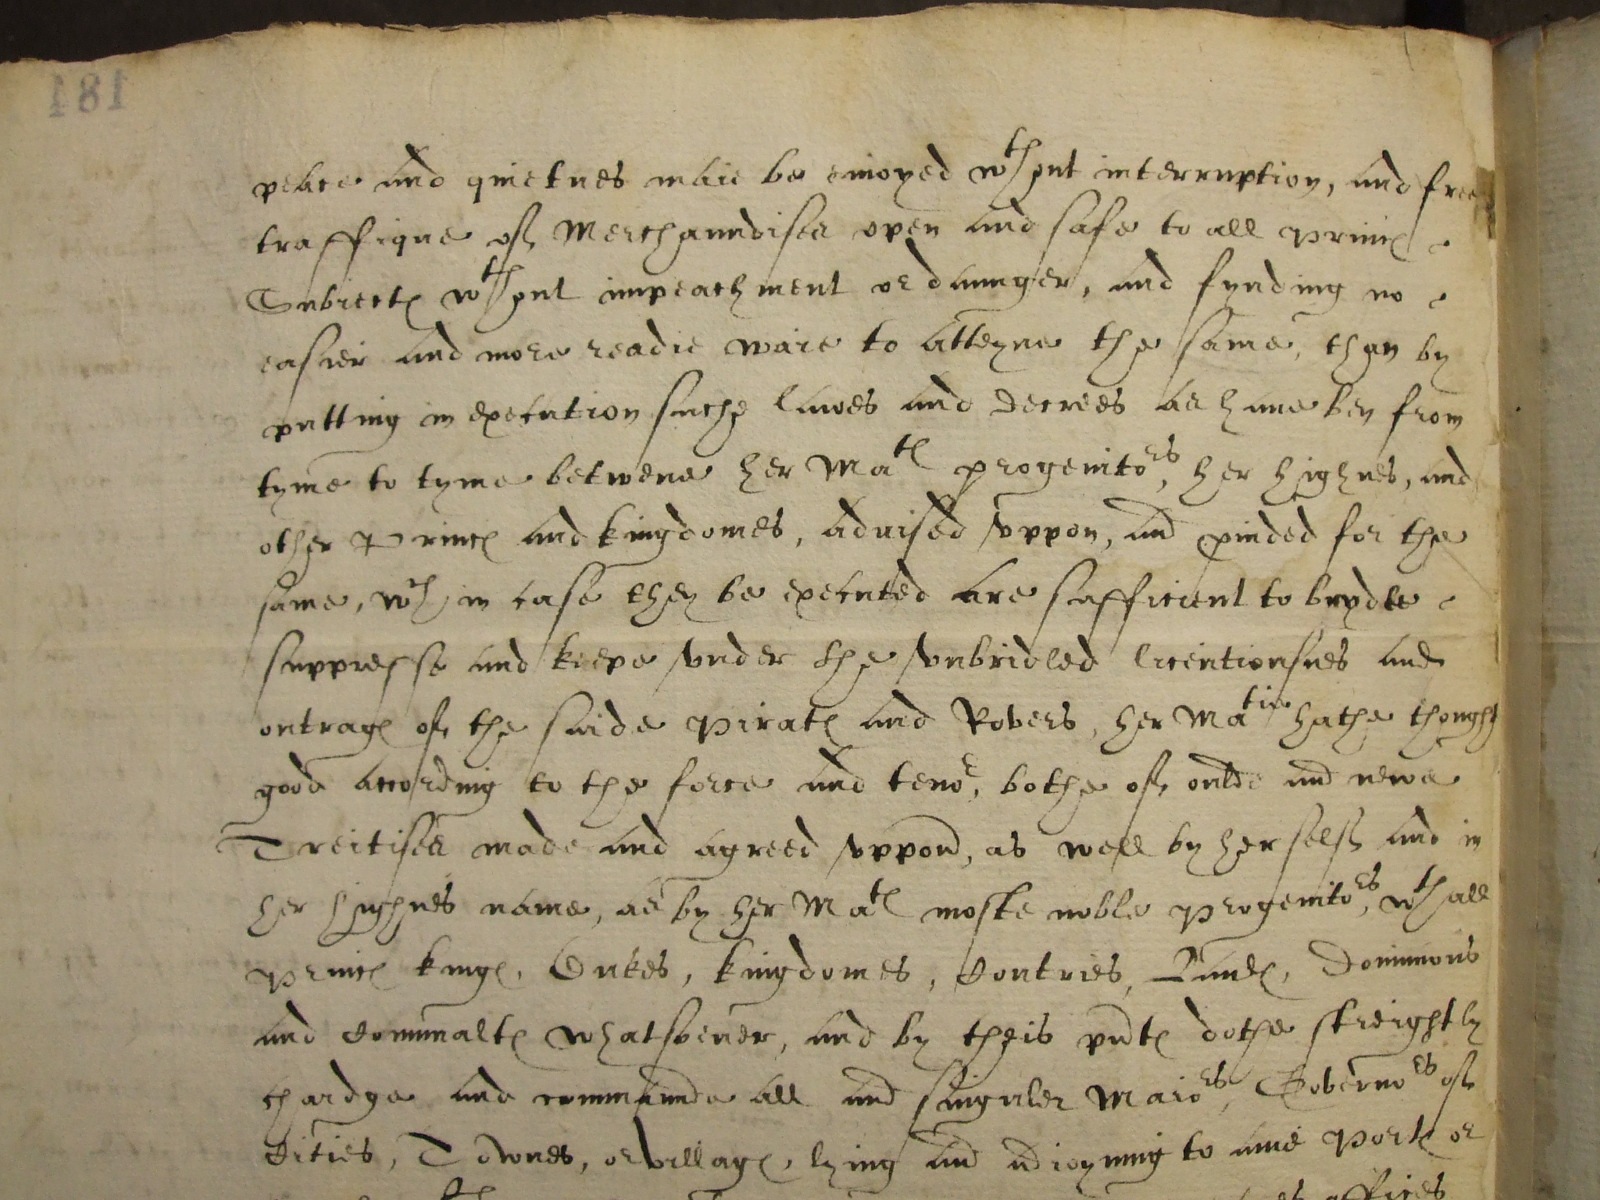 184
peace and quietnes maie be enioyed wthout interruption, and free
traffique of Merchaundises open and safe to all Princes
Subiectes wthout impeachment or daunger, and fynding no
easier and more readie waie to atteyne the same, then by
putting in execution suche lawes and decrees as haue ben from
tyme to tyme betwene her Mates progenitors, her highnes, and
other Princes and kingdomes, aduised vppon, and prouided for the
same, wch in case they be executed are sufficient to brydle
suppresse and keepe vnder the vnbridled licentiousnes and
outrages of the saide Pirates and Rovers, her Matie hathe thought
good according to the force and tenor, bothe of oulde and newe
Treitises made and agreed vppon, as well by her self and in
her highnes name, as by her Mates moste noble progenitors, wth all
Princes kinges, Dukes, kingdomes, Contries, Landes, Dominions
and Comunaltes whatsoeuer, and by theis pntes dothe streightly
chardge and commaunde all and singuler Maiors, Governors of
Cities, Townes, or villages, lying and adioyning to anie Portes or
offices